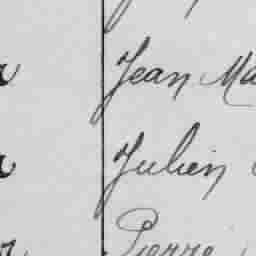 Jean Ma
Julien
Pierre